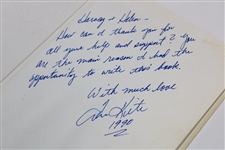 Harvey + Helen -
How can I thank you for
all your help and support? You
are the main reason I had the
opportunity to write this book.
With much love
Tom Kite
1990